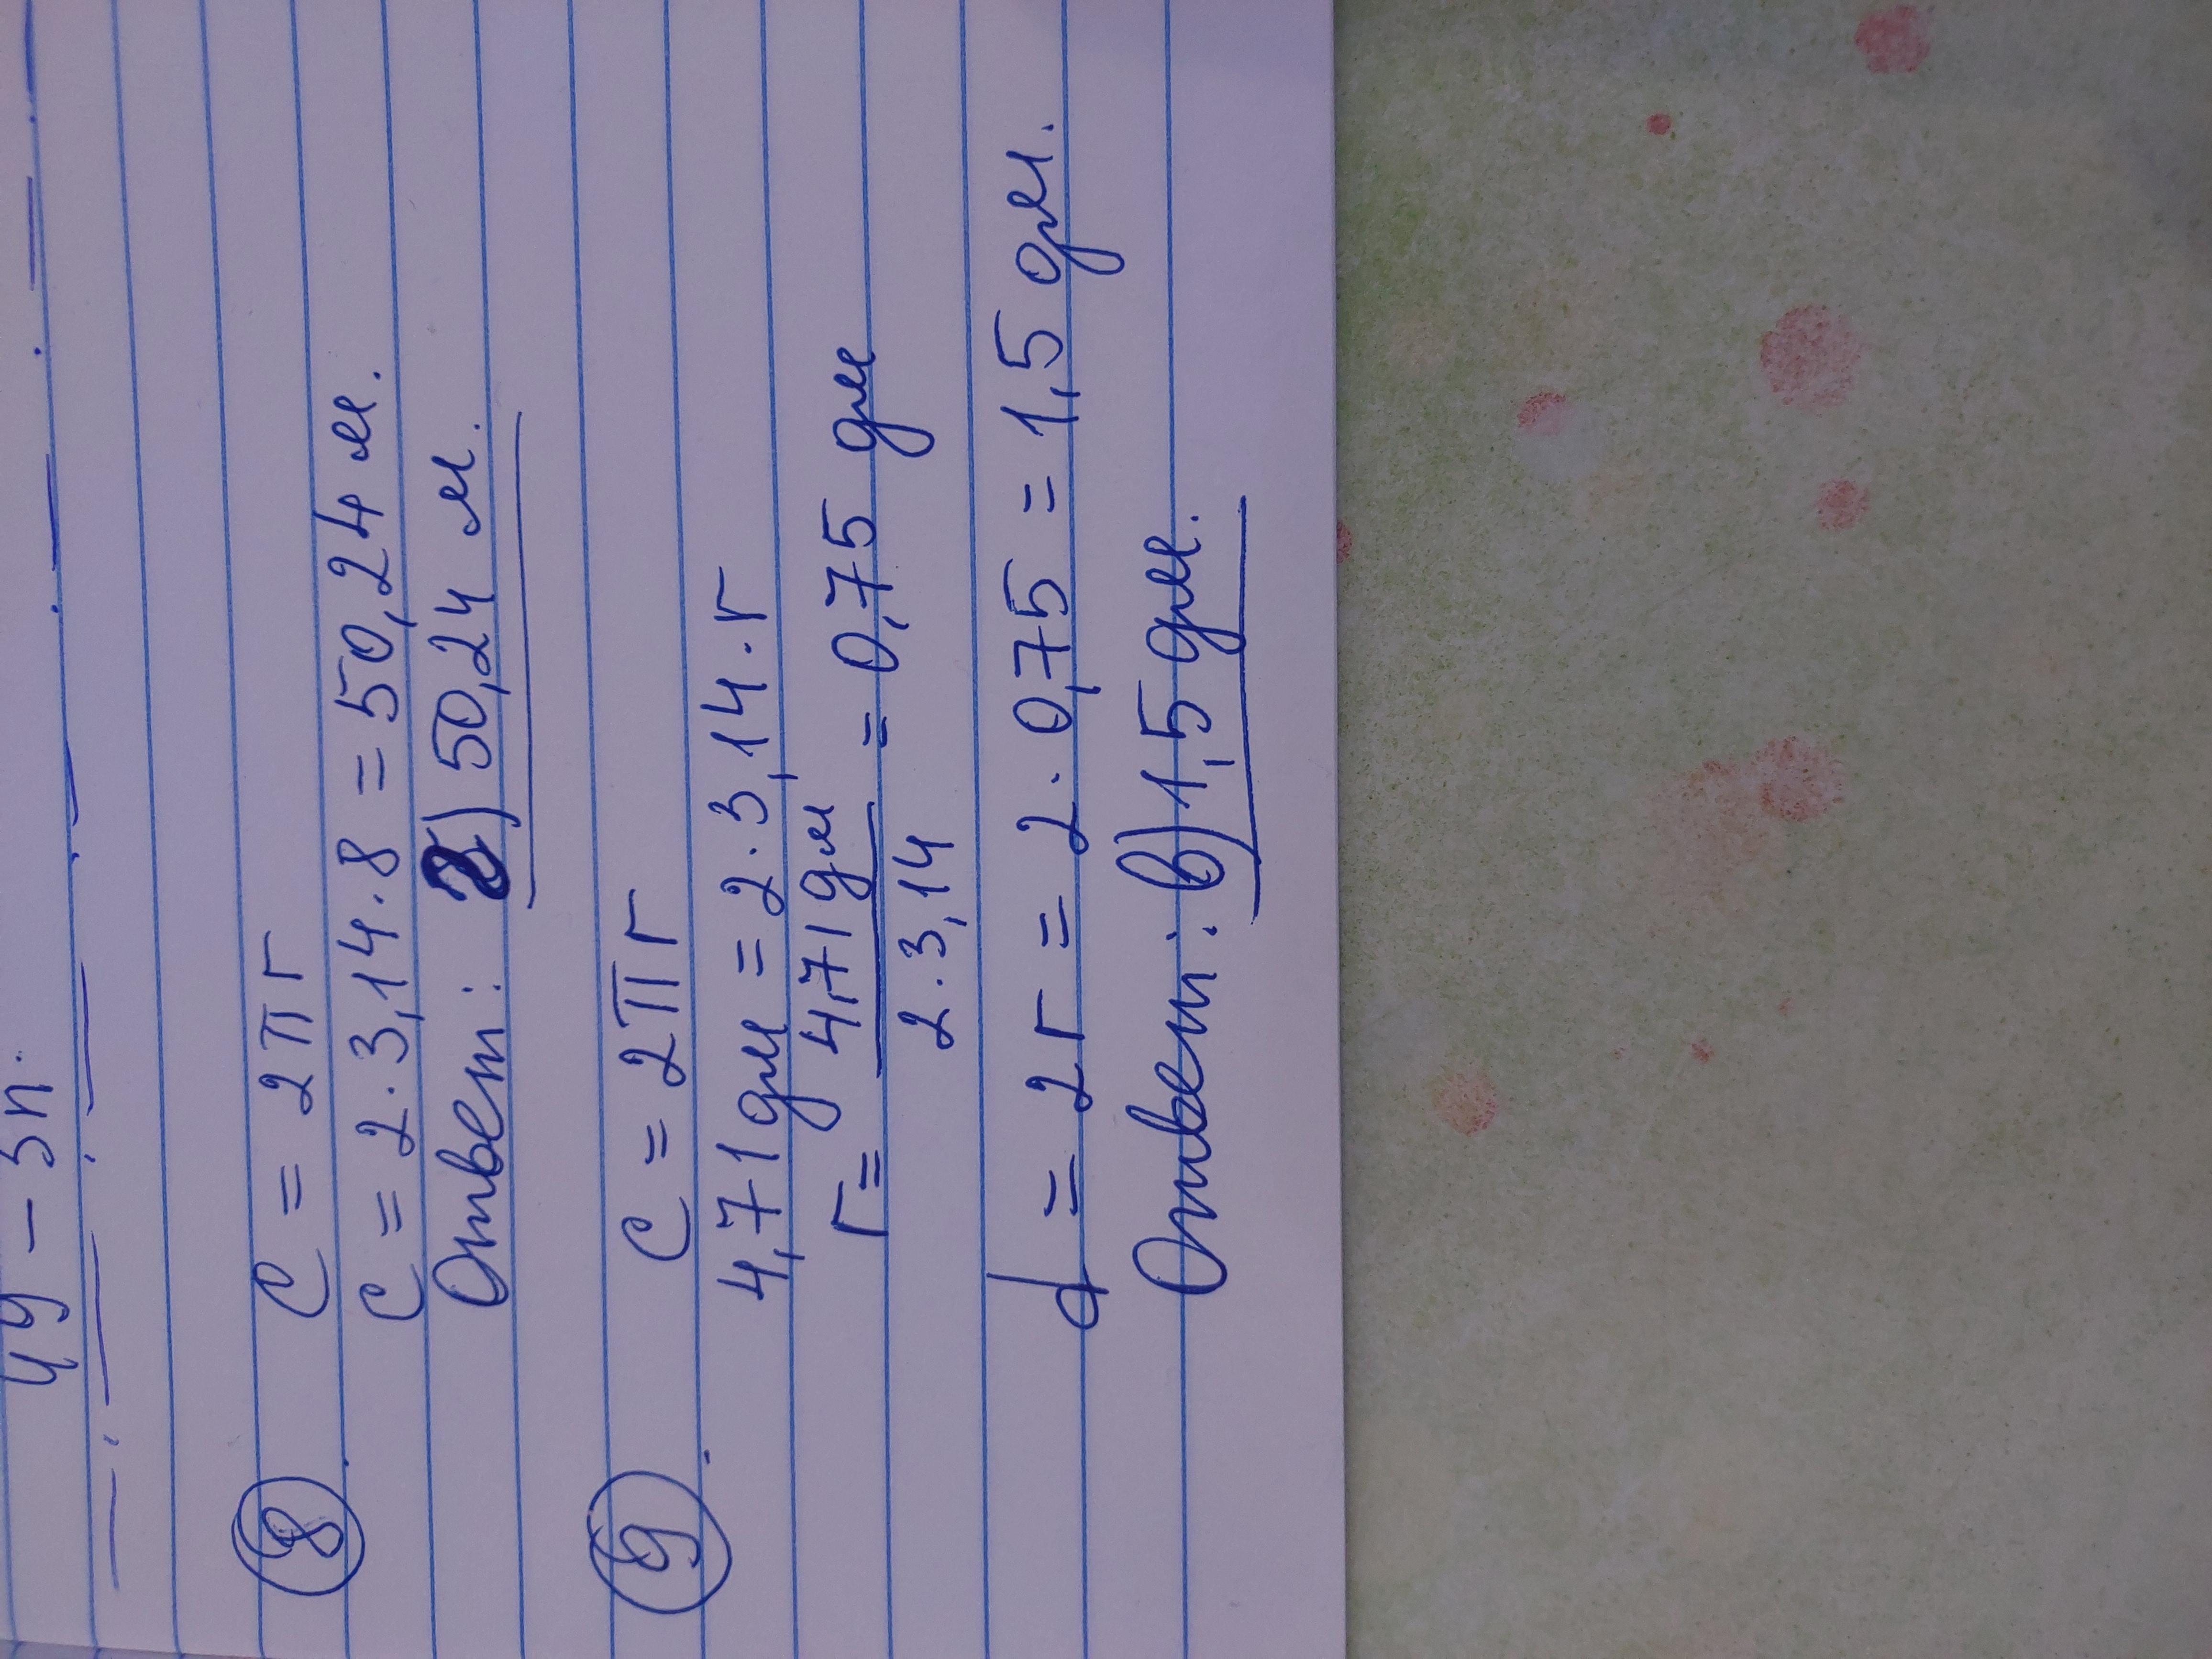 4y - 3n.
8. C = 2πr
C = 2·3,14·8 = 50,24 м.
Ответ: г) 50,24 м.
9. C = 2πr
4,71 дм = 2·3,14·r
r = 4,71 дм / 2·3,14 = 0,75 дм
d = 2r = 2·0,75 = 1,5 дм.
Ответ: в) 1,5 дм.